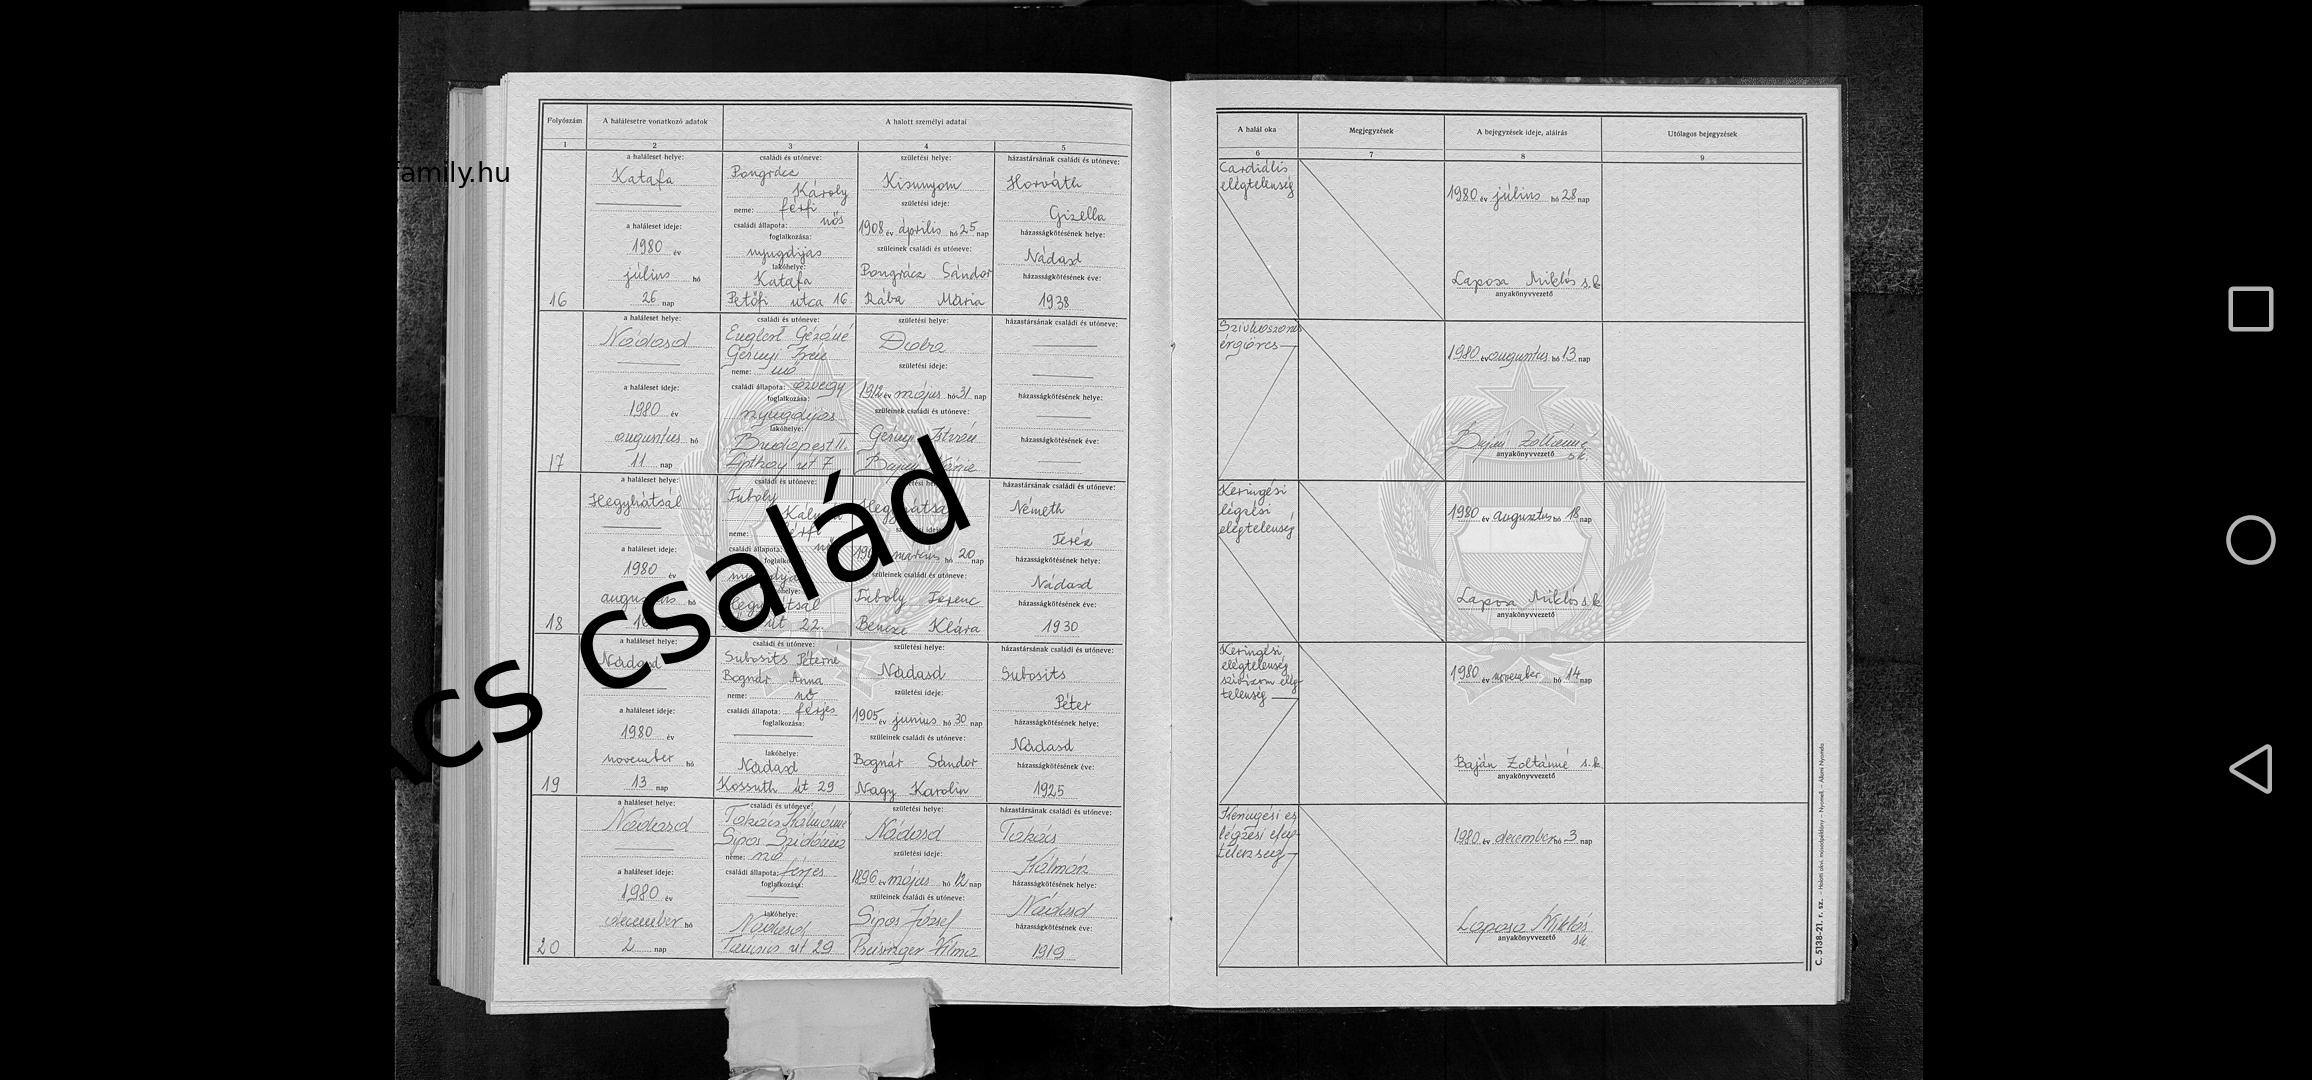 Folyószám
A halálesetre vonatkozó adatok
A halott személyi adatai
1
2
3
4
5
a haláleset helye:
Katafa
a haláleset ideje:
1980 év
július hó
26 nap
16
családi és utóneve:
Pongrácz
Károly
neme: férfi
családi állapota: nős
foglalkozása:
nyugdíjas
lakóhelye:
Katafa
Petőfi utca 16
születési helye:
Kisunyom
születési ideje:
1908 év április hó 25 nap
szüleinek családi és utóneve:
Pongrácz Sándor
Rába Mária
házastársának családi és utóneve:
Horváth
Gizella
házasságkötésének helye:
Nádasd
házasságkötésének éve:
1938
a haláleset helye:
Nádasd
a haláleset ideje:
1980 év
augusztus hó
11 nap
17
családi és utóneve:
Englert Gézáné
neme: nő
családi állapota: özvegy
foglalkozása:
nyugdíjas
lakóhelye:
Budapest II.
út 7.
születési helye:
születési ideje:
1912 év május hó 31 nap
szüleinek családi és utóneve:
István
házastársának családi és utóneve:
házasságkötésének helye:
házasságkötésének éve:
a haláleset helye:
Hegyhátsál
a haláleset ideje:
1980 év
hó
nap
18
családi és utóneve:
Tuboly
neme:
családi állapota:
út 22.
március hó 20 nap
szüleinek családi és utóneve:
Tuboly Ferenc
Bencze Klára
házastársának családi és utóneve:
Németh
Teréz
házasságkötésének helye:
Nádasd
házasságkötésének éve:
1930
a haláleset helye:
Nádasd
a haláleset ideje:
1980 év
november hó
13 nap
19
családi és utóneve:
Subosits Péterné
Bognár Anna
neme: nő
családi állapota: férjes
foglalkozása:
lakóhelye:
Nádasd
Kossuth út 29
születési helye:
Nádasd
születési ideje:
1905 év junius hó 30 nap
szüleinek családi és utóneve:
Bognár Sándor
Nagy Karolin
házastársának családi és utóneve:
Subosits
Péter
házasságkötésének helye:
Nádasd
házasságkötésének éve:
1925
a haláleset helye:
Nádasd
a haláleset ideje:
1980 év
december hó
2 nap
20
családi és utóneve:
Takács Kálmánné
Sipos Szidónia
neme: nő
családi állapota: férjes
foglalkozása:
lakóhelye:
Nádasd
út 29
születési helye:
Nádasd
születési ideje:
1896 év május hó 12 nap
szüleinek családi és utóneve:
Sipos József
Vilma
házastársának családi és utóneve:
Takács
Kálmán
házasságkötésének helye:
Nádasd
házasságkötésének éve:
1919
A halál oka
Megjegyzések
A bejegyzések ideje, aláírás
Utólagos bejegyzések
6
7
8
9
Cardiális
elégtelenség
1980 év július hó 28 nap
Laposa Miklós s.k.
anyakönyvvezető
érgörcs
1980 év augusztus hó 13 nap
Zoltánné
anyakönyvvezető
s.k.
Keringési
légzési
elégtelenség
1980 év augusztus hó 18 nap
Laposa Miklós s.k.
anyakönyvvezető
Keringési
elégtelenség
szívizom elég-
telenség
1980 év november hó 14 nap
Baján Zoltánné s.k.
anyakönyvvezető
Keringési és
légzési elég-
telenség
1980 év december hó 3 nap
Laposa Miklós
anyakönyvvezető
sk
C. 5138-21. r. sz.
family.hu
ács család